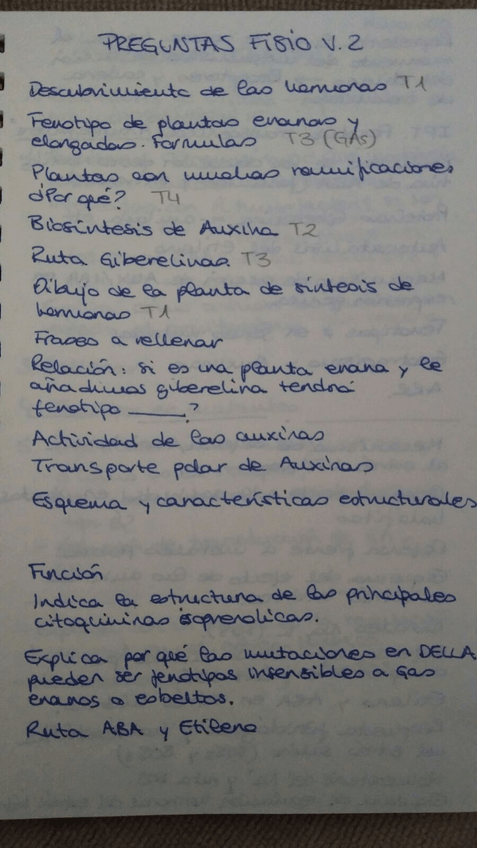 PREGUNTAS FISIO V.2
Descubrimiento de las hormonas T1
Fenotipo de plantas enanas y
elongadas. Formulas T3 (GAs)
Plantas con muchas ramificaciones
¿Por qué? T4
Biosíntesis de Auxina T2
Ruta Giberelinas T3
Dibujo de la planta de síntesis de
hormonas T1
Frases a rellenar
Relación: si es una planta enana y le
añadimos giberelina tendrá
fenotipo ____?
Actividad de las auxinas
Transporte polar de Auxinas
Esquema y características estructurales
Función
Indica la estructura de las principales
citoquininas isoprenolicas.
Explica por qué las mutaciones en DELLA
pueden ser fenotipos insensibles a Gas
enanos o esbeltos.
Ruta ABA y Etileno